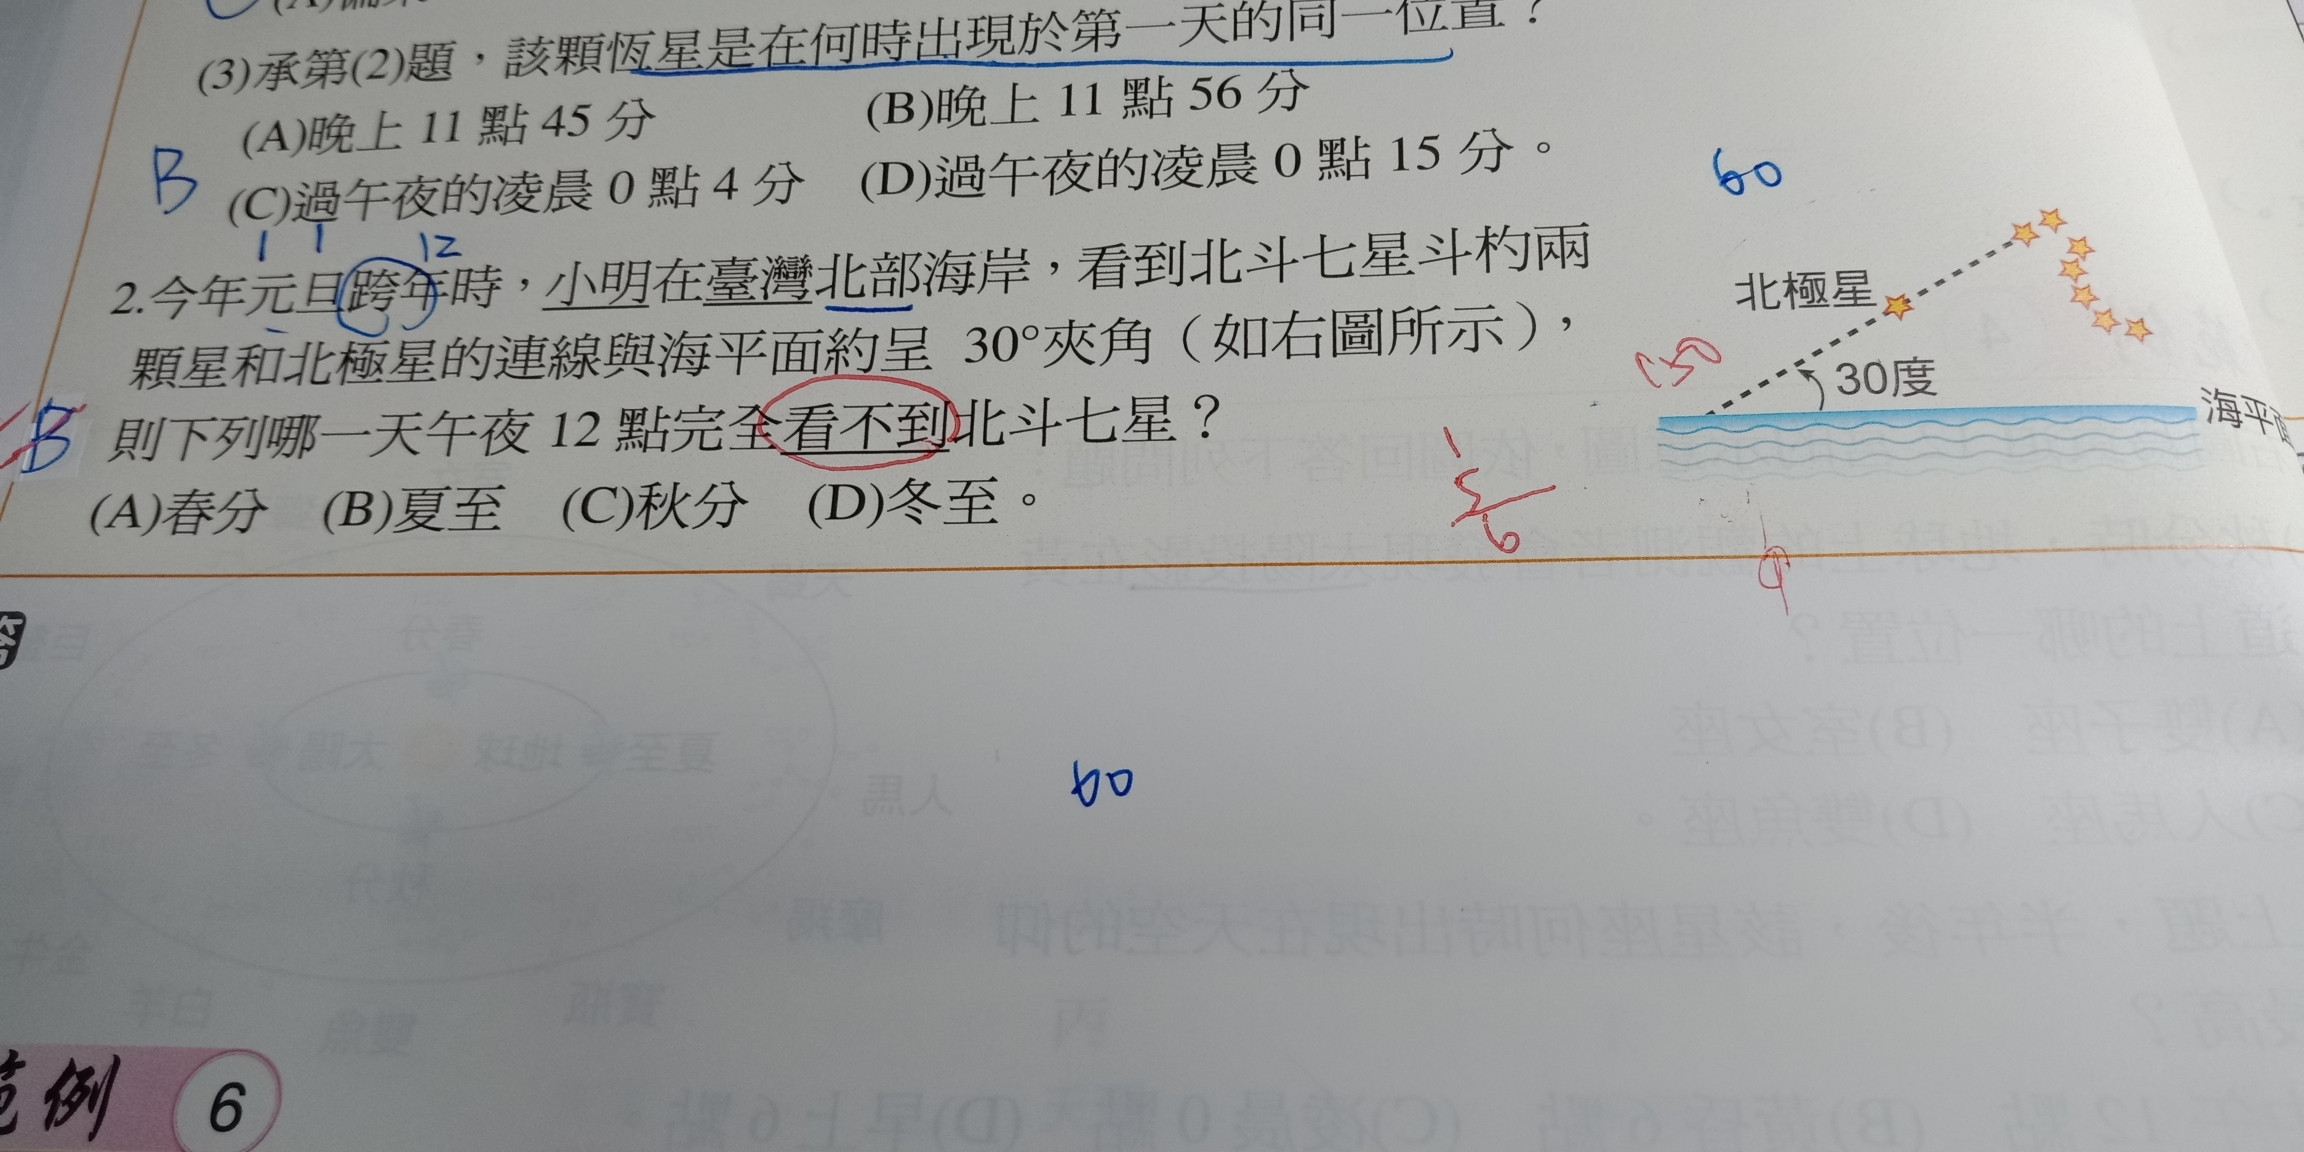 (3)承第(2)題，該顆恆星是在何時出現於第一天的同一位置？
(A)晚上 11 點 45 分 (B)晚上 11 點 56 分
B
(C)過午夜的凌晨 0 點 4 分 (D)過午夜的凌晨 0 點 15 分。
60
1 1 12
2.今年元旦跨年時，小明在臺灣北部海岸，看到北斗七星斗杓兩
顆星和北極星的連線與海平面約呈 30°夾角（如右圖所示），
B
則下列哪一天午夜 12 點完全看不到北斗七星？
(A)春分 (B)夏至 (C)秋分 (D)冬至。
北極星
150
30度
海平面
60
範例 6